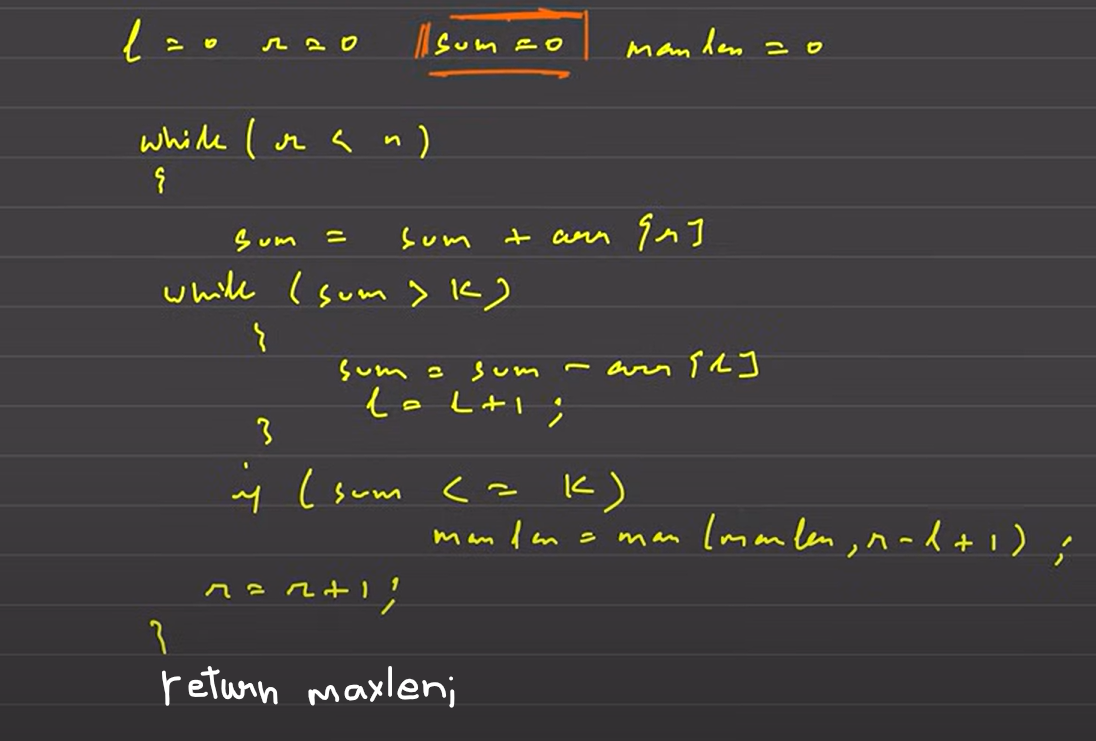 l = 0 r = 0 sum = 0 maxlen = 0
while ( r < n )
{
sum = sum + arr [r]
while ( sum > K )
{
sum = sum - arr [l]
l = l + 1 ;
}
if ( sum <= K )
maxlen = max (maxlen, r - l + 1) ;
r = r + 1 ;
}
return maxlen;